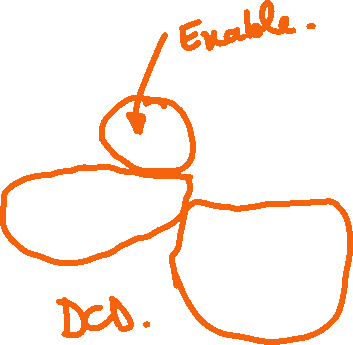 Enable.
DCD.